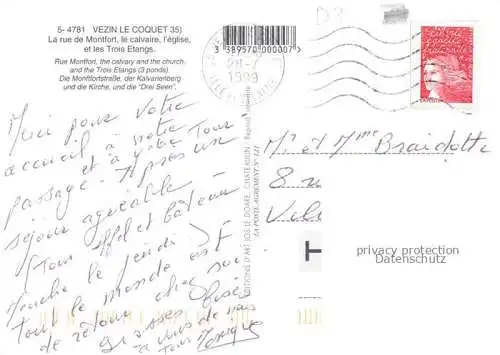 5- 4781 VEZIN LE COQUET 35)
La rue de Montfort, le calvaire, l'église,
et les Trois Etangs.
Rue Montfort, the calvary and the church,
and the Trois Etangs (3 ponds)
Die Montfortstraße, der Kalvarienberg
und die Kirche, und die "Drei Seen".
3 389570 000007
D3
28-7
1999
ILLE ET VILAINE
Merci pour votre
accueil à notre
et à votre Tour
passage. Après un
séjour agréable
(Tour Eiffel et bâteau
Mouche le jeudi)
Tout le monde est
de retour chez soi
grosses bises
à vous de nous
Tous
EDITIONS D'ART JOS LE DOARÉ, CHATEAULIN
LA POSTE AGREMENT N° 427
Mr et Mme Braidotte
8 rue
privacy protection
Datenschutz